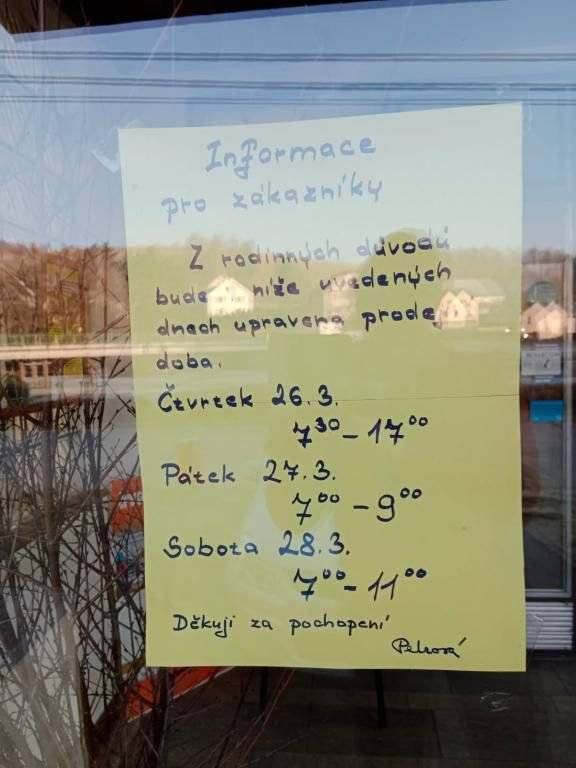 Informace
pro zákazníky
Z rodinných důvodů
bude níže uvedených
dnech upravena prodej
doba.
Čtvrtek 26.3.
7³⁰ - 17⁰⁰
Pátek 27.3.
7⁰⁰ - 9⁰⁰
Sobota 28.3.
7⁰⁰ - 11⁰⁰
Děkuji za pochopení